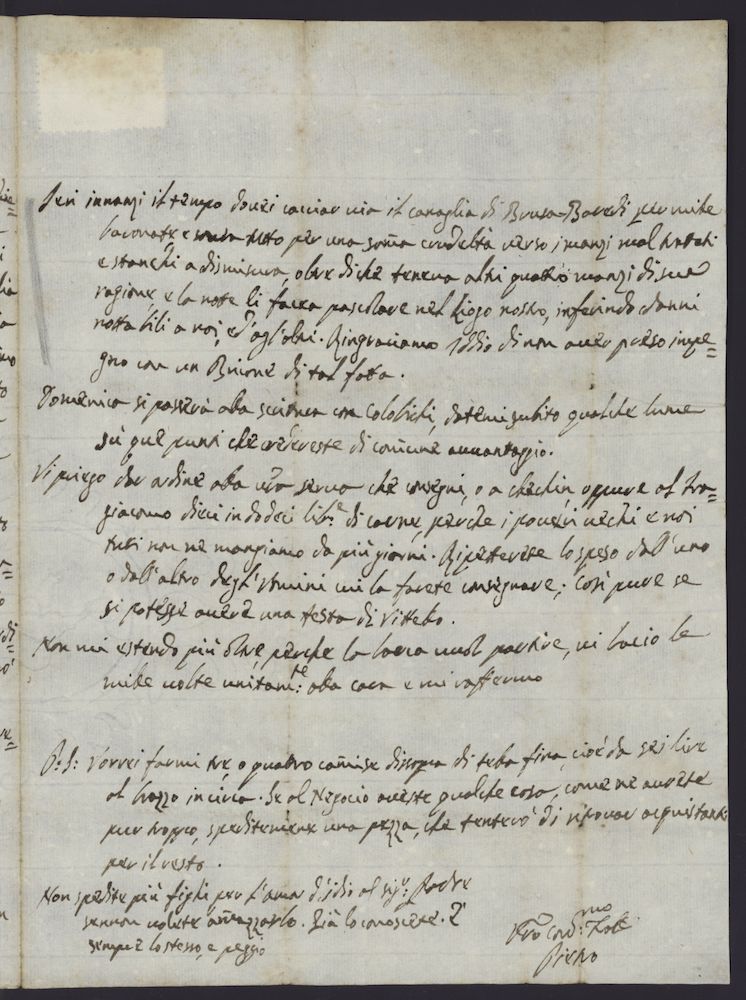 Ieri innanzi il tempo dovei cacciar via il canaglia di Brusa-Boredi per mille
baronate e tutto per una somã crudeltà verso i manzi mal trattati
e stanchi a dismisura, oltre di che teneva altri quattro manzi di sua
ragione, e la notte li facea pascolare nel luogo nostro, inferindo danni
nottabili a noi, e d'agl'altri. Ringraziamo Iddio di non aver preso impe=
gno con un Briccone di tal fatta.
Domenica si passerà alla scrittura con Colobichi, datemi subito qualche lume
sù que punti che credereste di comune avvantaggio.
Vi priego dar ordine alla vrã serva che consegni, o a Checchin, oppure al tra=
giacomo dieci in dodeci libr.e di carne, perche i poveri vecchi e noi
tutti non ne mangiamo da più giorni. Ripetterete lo speso dall'uno
o dall'altro degl'Uomini cui la farete consegnare; Così pure se
si potesse avere una testa di Vittello.
Non mi estendo più oltre, perche la barca vuol partire, vi bacio le
mille volte unitam.te: alla cara e mi raffermo
P: S: Vorrei farmi tre, o quattro camise di sopra di tella fina, cioè da sei lire
al brazzo in circa. Se al Negocio aveste qualche cosa, come ne avrete
pur troppo, speditemene una pezza, che tenterò di ritrovar acquistanti
per il resto.
Non spedite più fighi per l'amor d'Idio al sig.r Padre
sennon volete amazzarlo. Già lo conoscete. È
sempre lo stesso, e peggio
Vrõ cord:mo Frat
Pietro